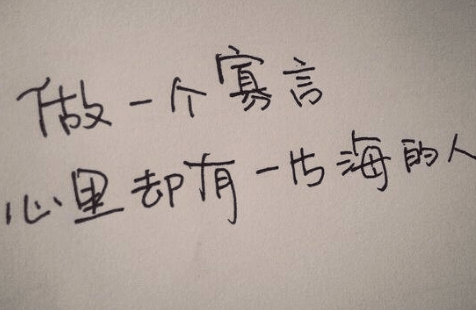 做一个寡言
心里却有一片海的人